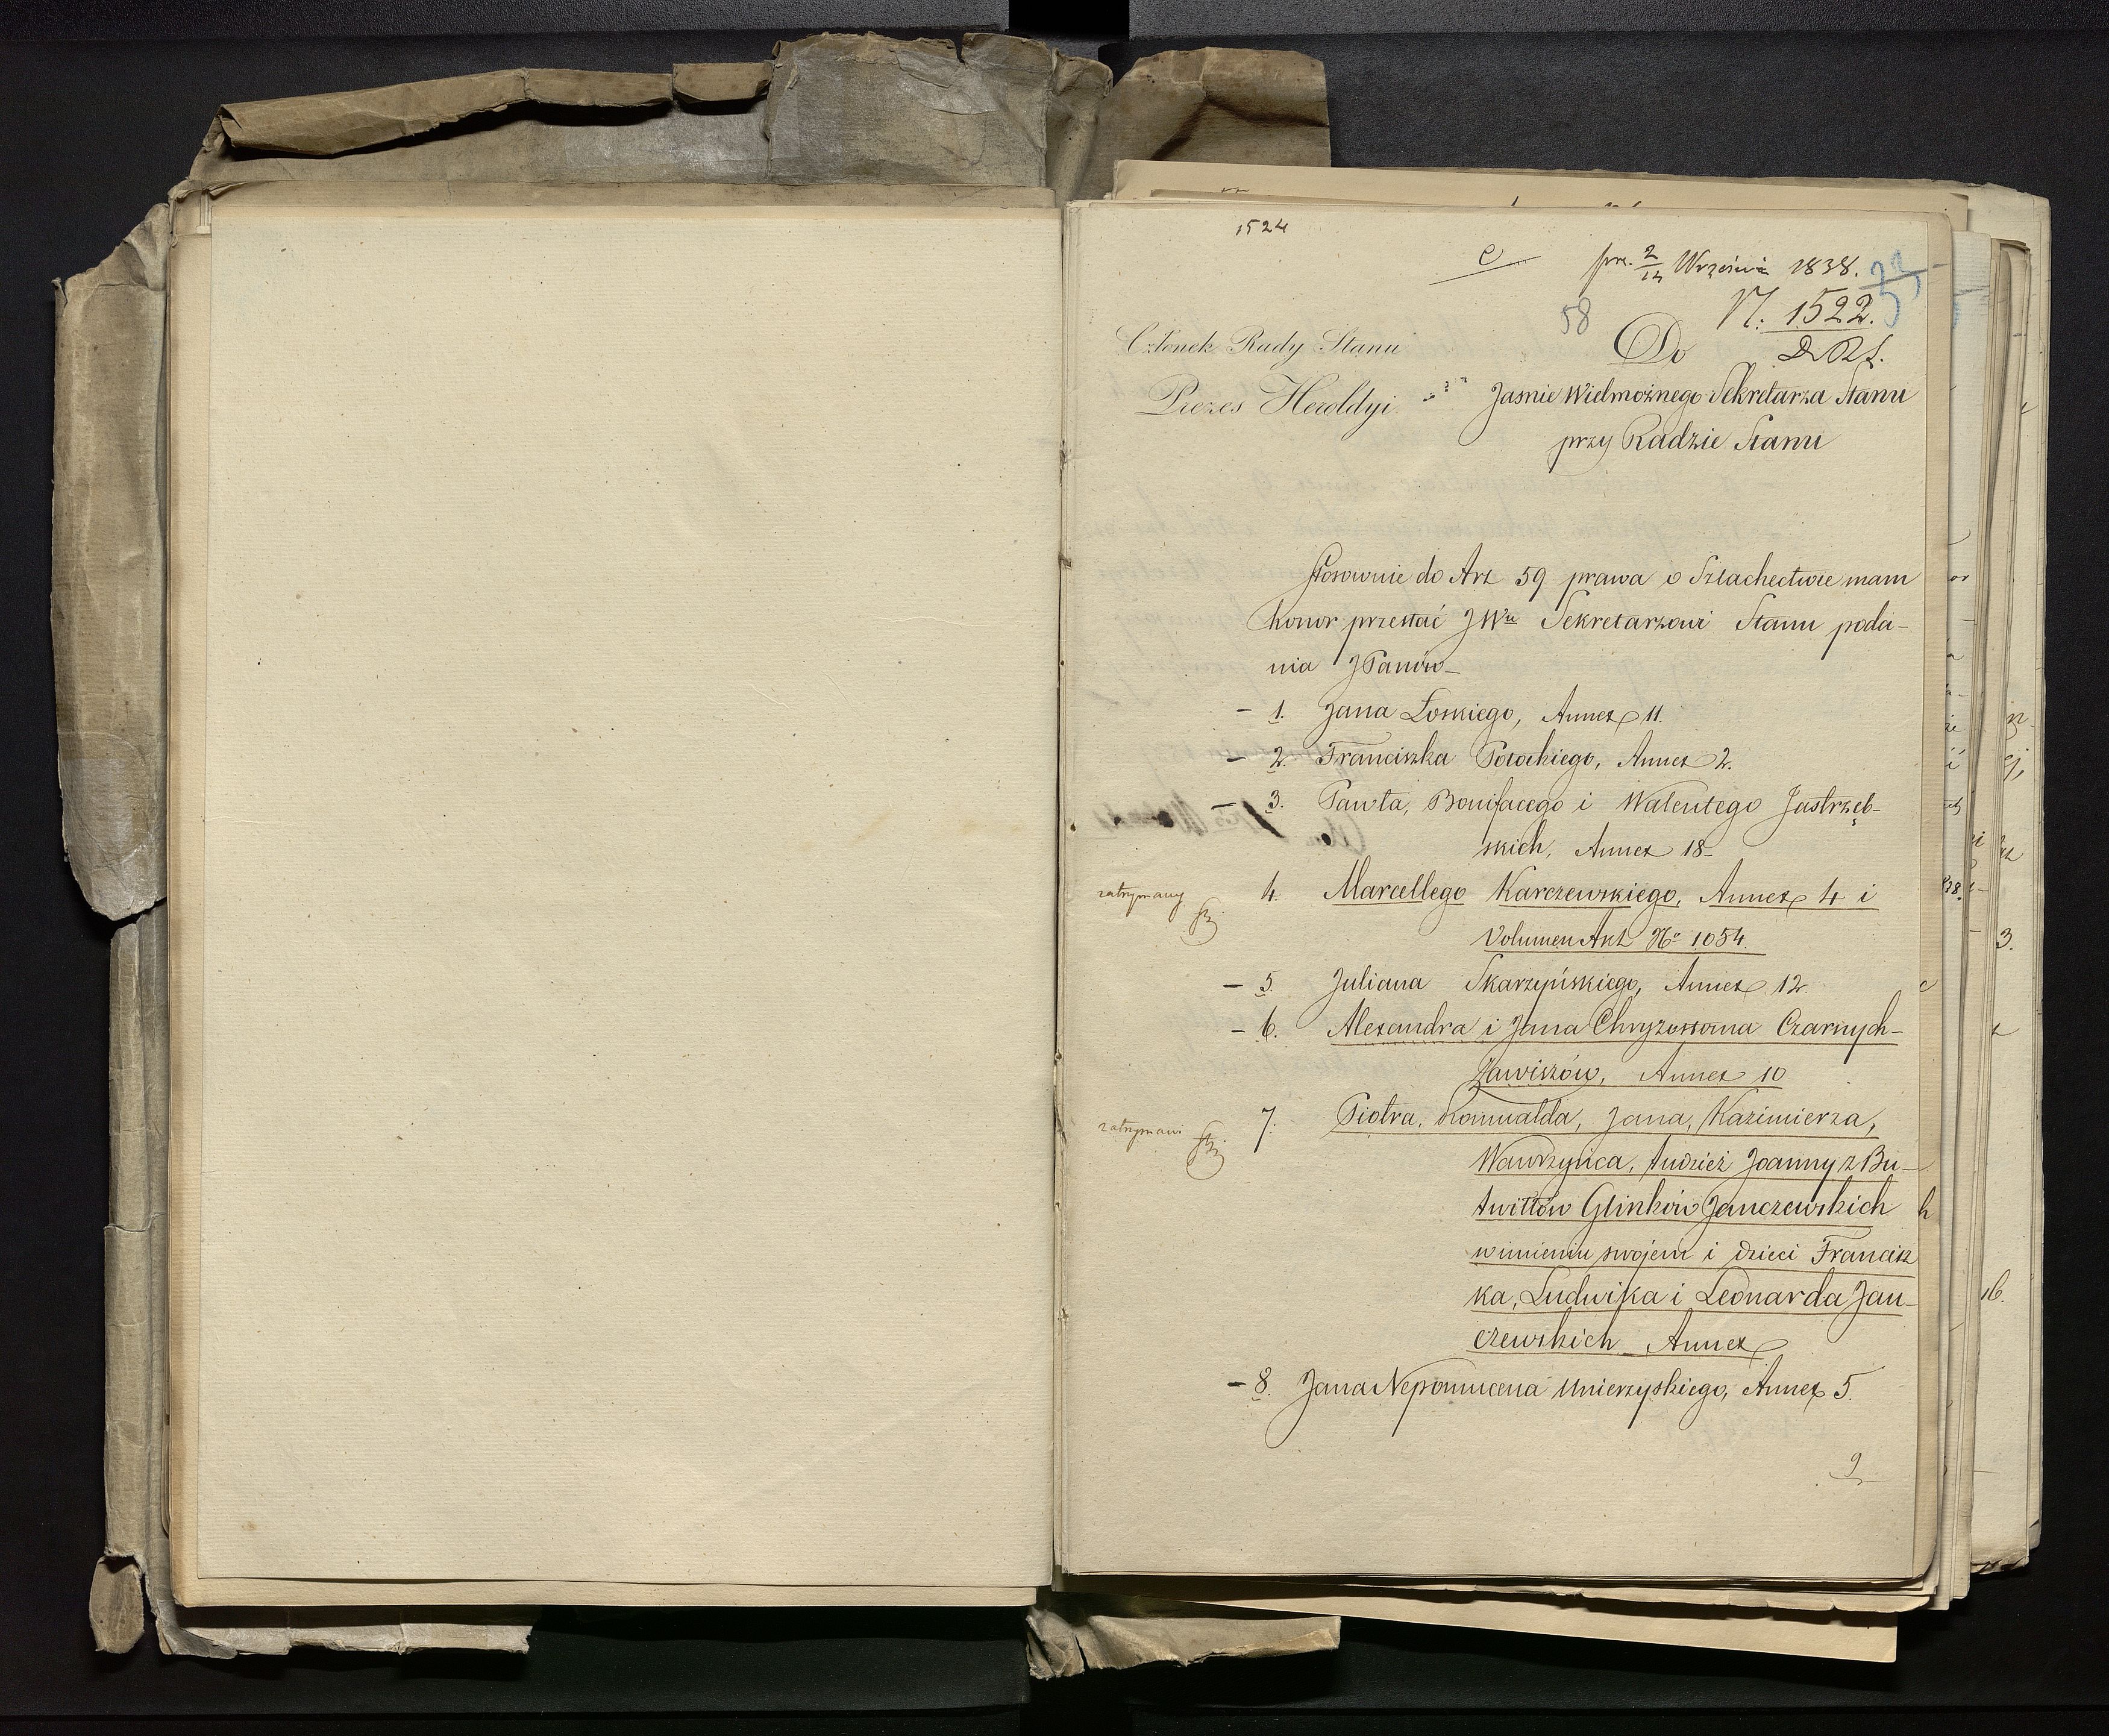 1524
prz. 2/14 Września 1838.
33
58
N. 1522.
Członek Rady Stanu
Do
Prezes Heroldyi
Jasnie Wielmożnego Sekretarza Stanu
przy Radzie Stanu
Stosownie do Art 59 prawa o Szlachectwie mam
honor przesłać JWu Sekretarzowi Stanu poda-
nia JPanów-
- 1. Jana Łoskiego, Annex 11.
- 2. Franciszka Annex 2.
- 3. Pawła, Bonifacego i Walentego Jastrzęb-
skich, Annex 18-
zatrzymany
4. Marcellego Karczewskiego, Annex 4 i
Volumen Akt No 1054.
- 5. Juliana Skarzyńskiego, Annex 12
- 6. Alexandra i Jana Chryzostoma Czarnych-
Zawiszów, Annex 10
zatrzymani
7. Piotra, Romualda, Jana, Kazimierza,
Wawrzyńca, tudzież Joanny z Bu-
twiłłów Glinków Janczewskich
w imieniu swojem i dzieci Francisz
ka, Ludwika i Leonarda Jan-
czewskich Annex
- 8. Jana Nepomucena Unierzyskiego, Annex 5.
9